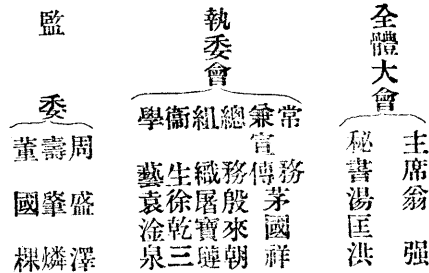 全體大會
主席翁强
秘書湯匡洪
執委會
常務兼宣傳茅國祥
總務殷來朝
組織屠寶璉
衞生徐乾三
學藝袁淦泉
監委
周盛澤
壽肇燐
董國樑